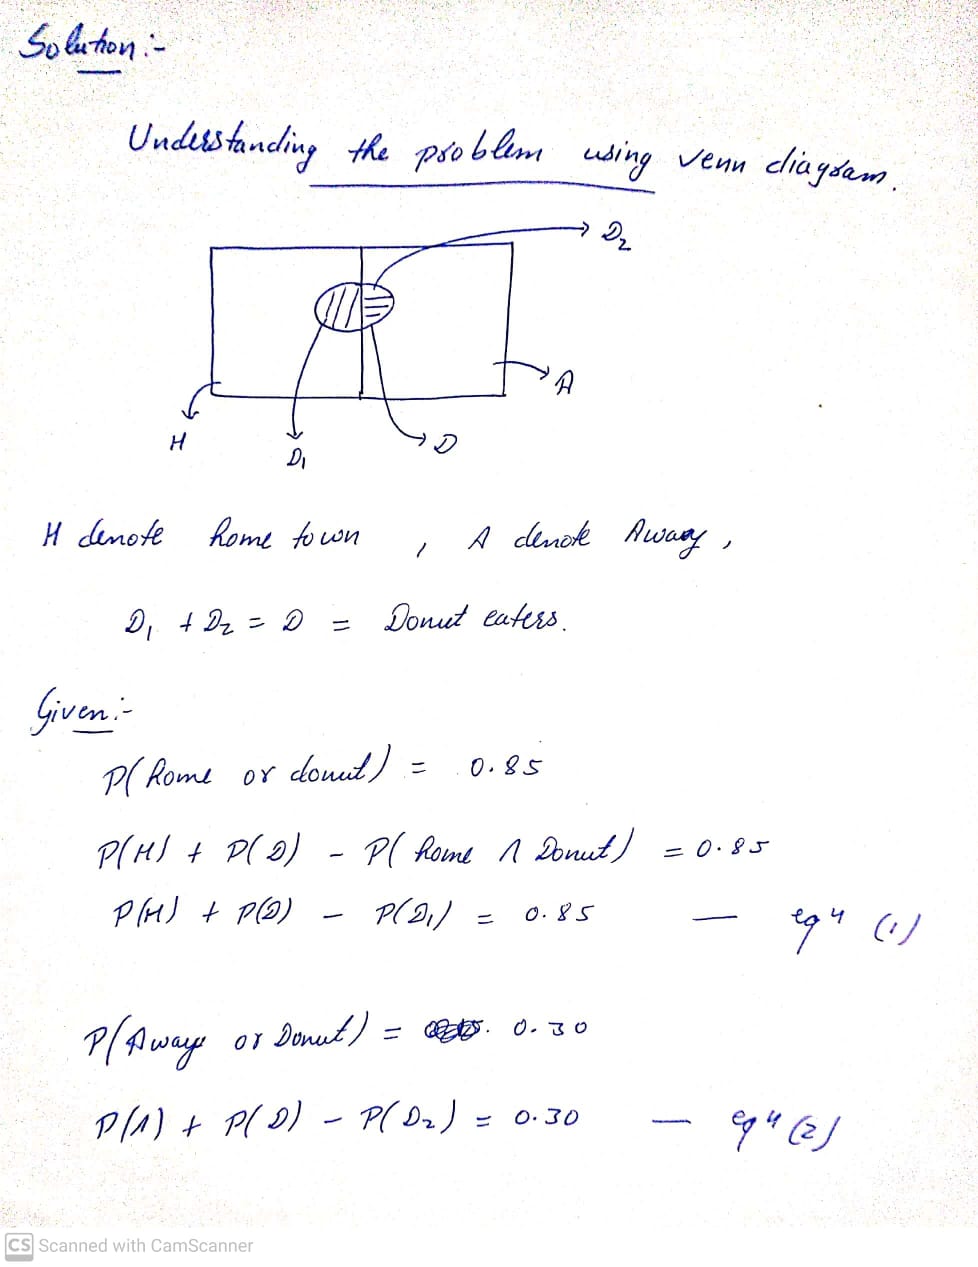 Solution :-
Understanding the problem using venn diagram.
D₂
A
H
D₁
D
H denote home town , A denote Away ,
D₁ + D₂ = D = Donut eaters.
Given :-
P( home or donut ) = 0.85
P(H) + P(D) - P( home ∩ Donut ) = 0.85
P(H) + P(D) - P(D₁) = 0.85 — eqⁿ (1)
P(Away or Donut) = 0.30
P(A) + P(D) - P(D₂) = 0.30 — eqⁿ (2)
CS Scanned with CamScanner